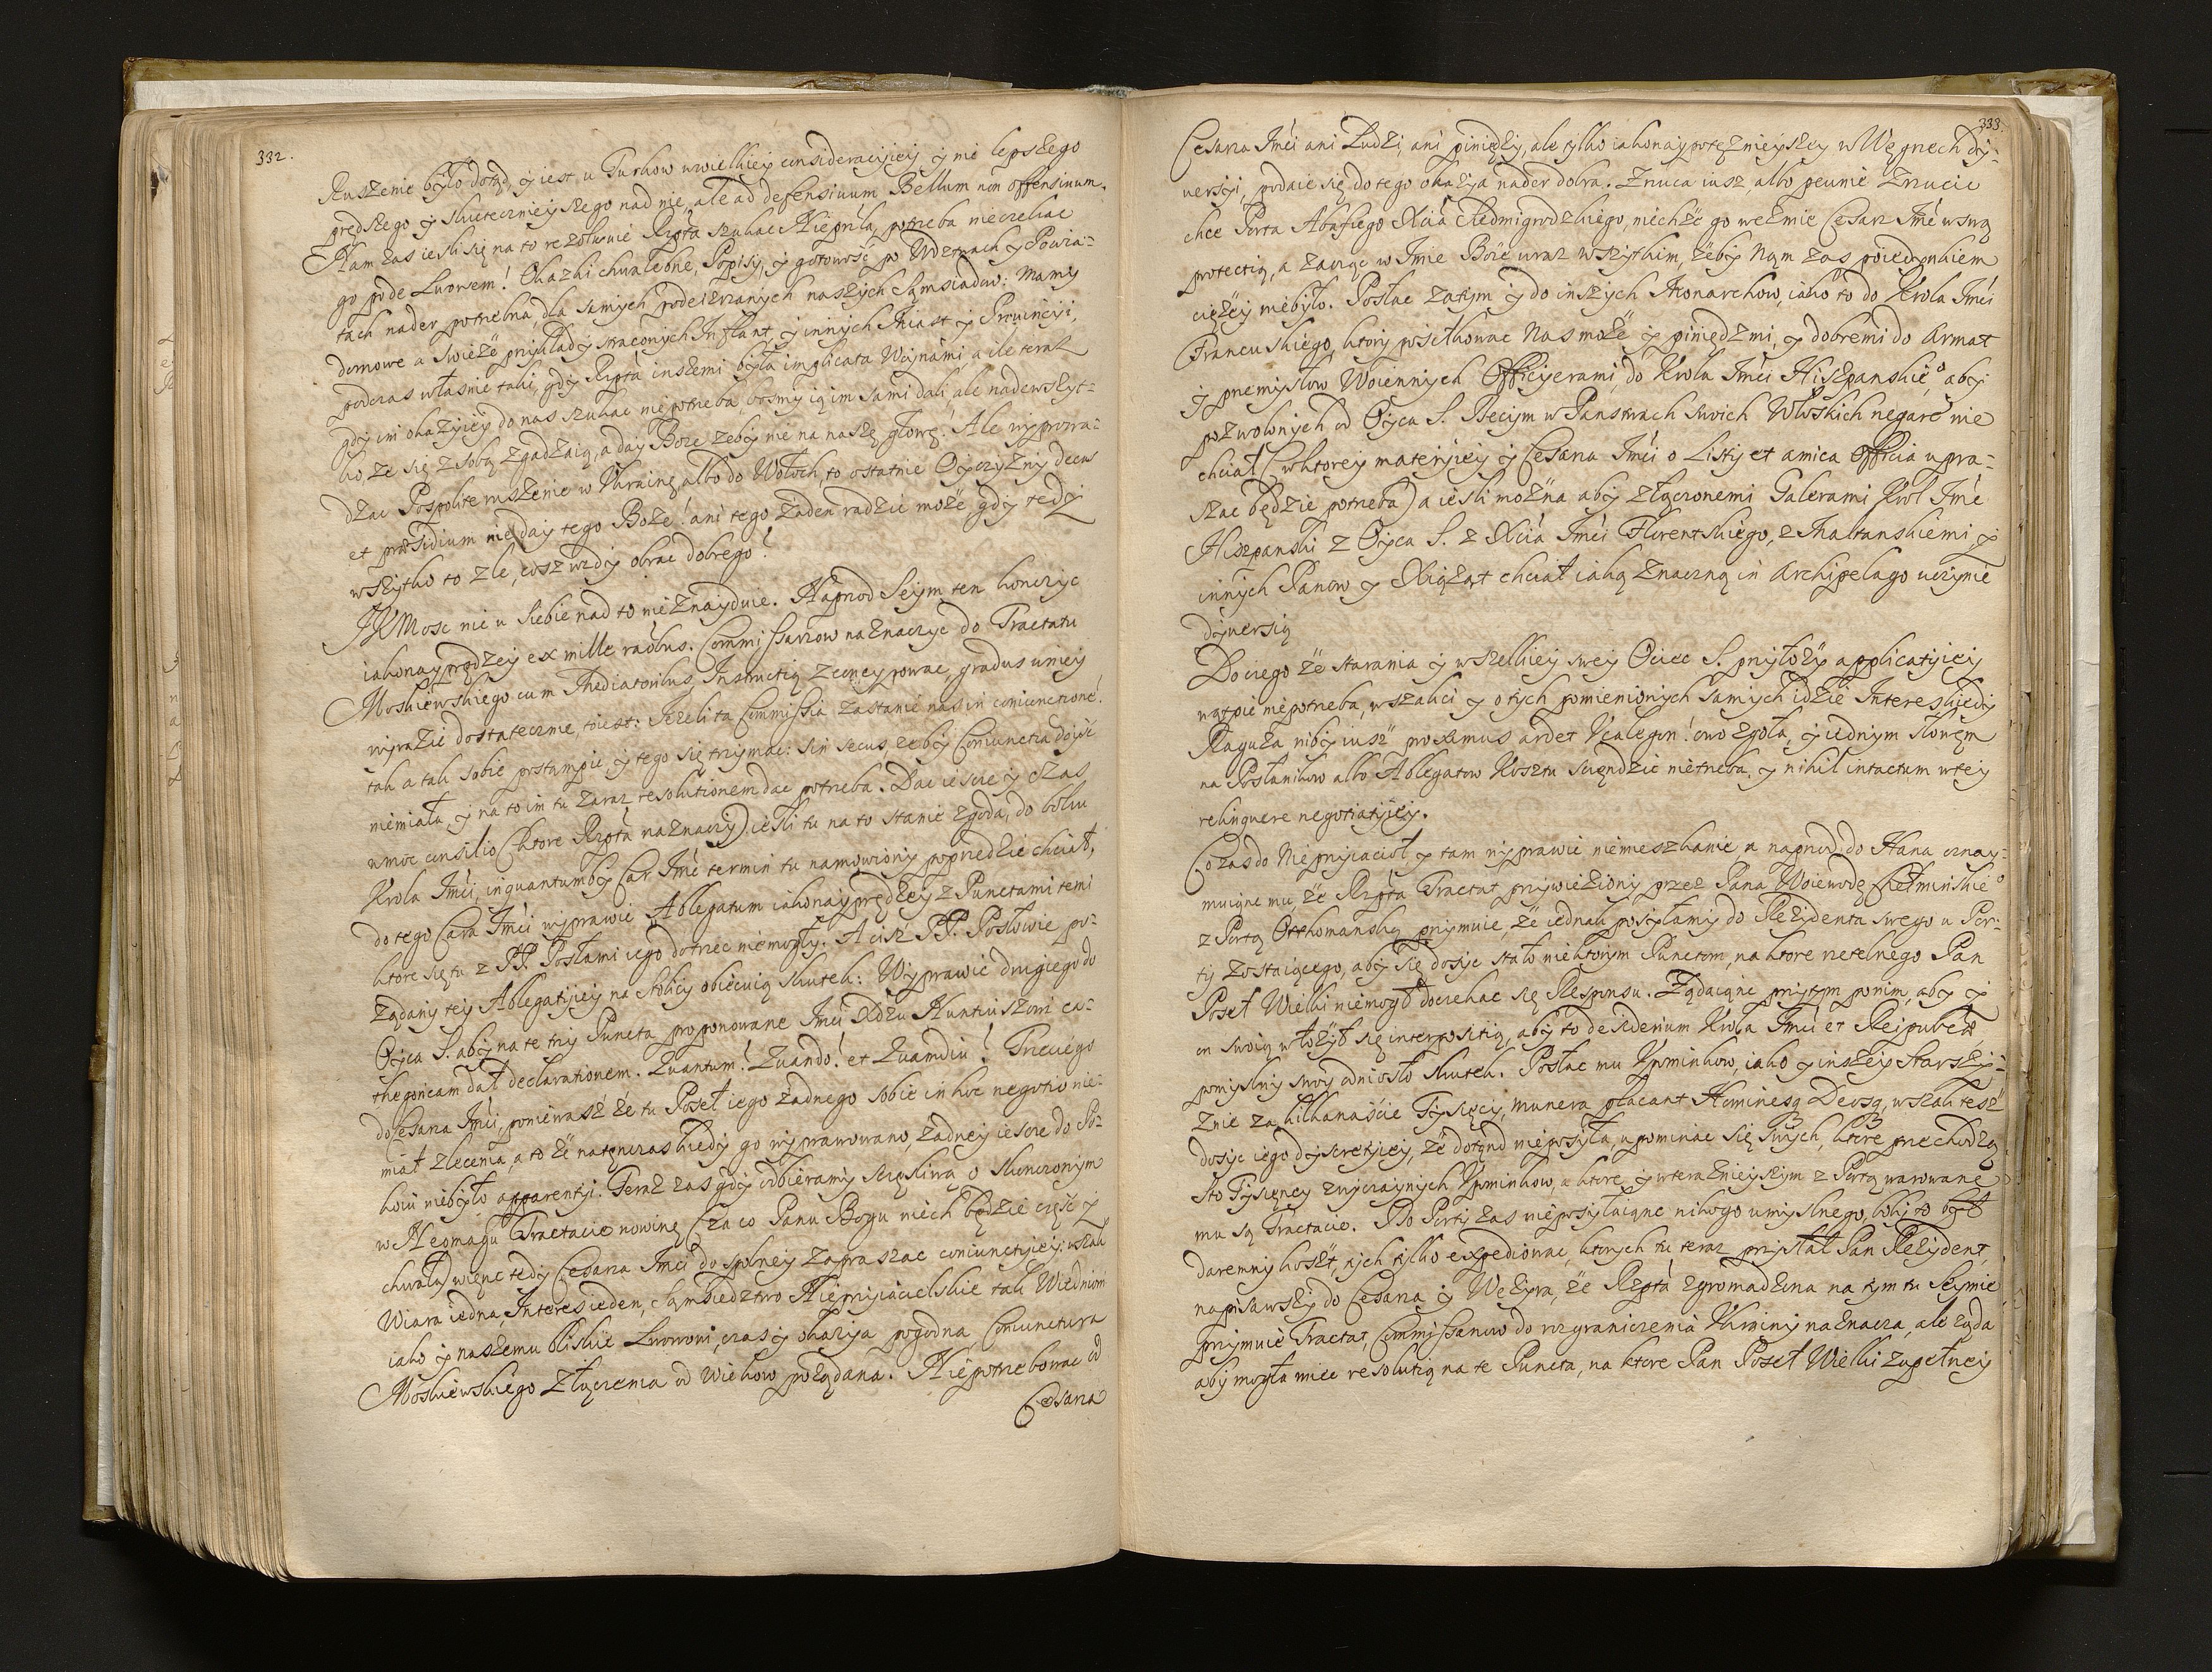 332.
Ruszenie było dotąd, y iest u Turkow w wielkiey consideracyiey y nic lepszego
prędszego y skutecznieyszego nad nie, ale ad defensiuum Bellum non offensiuum.
Nam zas iesli się na to rezolwuie Rzpta szukac Nieprzla, potrzeba nieczekac
go pode Lwowem! Okazki chwalebne, Popisy, y gotowość po Wdztwach y Powia-
tach nader potrzebna, dla samych podeizrzanych naszych Sąmsiadow: mamy
domowe a swieże przykłady straconych Inflant y innych Miast y Prowincyi,
podczas własnie taki, gdy Rzpta inszemi była implicata Woynami, a ile teraz
gdy im okazyiey do nas szukac nie potrzeba, bosmy ią im sami dali, ale nadewszyt-
ko, że się z sobą zgadzaią, a day Boze zeby nie na naszę głowę! Ale wyprowa-
dzac Pospolite ruszenie w Ukrainę albo do Wołoch, to ostatnie Oyczyzny decus
et præsidium nie day tego Boże! ani tego żaden radzić może, gdy tedy
wszytko to zle, cosz wzdy obrac dobrego!
JKMosc nic u siebie nad to nie znayduie. Naprzod Seym ten konczyc
iakonayprędzey ex mille raõbus. Commissarzow naznaczyc do Tractatu
Moskiewskiego cum Mediatoribus, Instructią zconcypowac, gradus w niey
wyrazić dostatecznie, to iest: Iezeli ta Commissia zastanie nas in coniunctione!
tak a tak sobie postąmpic, y tego się trzymac: sin secus, zeby Coniunctia doyść
niemiała, y na to im tu zaraz resolutionem dac potrzeba. Dac iescze y czas
w moc consilio (ktore Rzpta naznaczy) iesli tu na to stanie zgoda, do boku
Krola Jmći, inquantumby Car Jmć termin tu namowiony poprzedzić chciał,
do tego Cara Jmći wyprawić Ablegatum iakonayprędzey z Punctami temi
ktore się tu z PP. Posłami iego dotrzec niemogły. A cisz PP. Posłowie po-
żądany tey Ablegatyiey na stolicy obiecuią skutek: Wyprawić drugiego do
Oyca S. aby na te trzy Puncta proponowane Jmći Xdzu Nuntiuszowi ca-
thegoricam dał declarationem. Quantum! Quando! et Quamdiu! Trzeciego
do Cesarza Jmći, poniewasz że tu Poseł iego żadnego sobie in hoc negotio nie-
miał zlecenia, a to że natęnczas kiedy go wyprawowano, żadney iescze do Po-
koiu niebyło apparentyi. Teraz zas gdy odbieramy sczęsliwą o skonczonym
w Neomagu Tractacie nowinę (za co Panu Bogu niech będzie część y
chwała) więnc tedy Cesarza Jmći do spolney zapraszac coniunctyiey: wszak
Wiara iedna, Interes ieden, Sąmsiedztwo Nieprzyiacielskie tak Wiedniowi
iako y naszemu bliskie Lwowowi, czas y okazyia pogodna, Coniunctura
Moskiewskiego złączenia od wiekow pożądana. Niepotrzebowac od
Cesarza
333.
Cesarza Jmći ani Ludzi, ani piniędzy, ale tylko iakonaypotęznieyszey w Węgrzech dy-
uersyi, podaie się do tego okazyia nader dobra. Zruca iusz, albo pewnie zrucic
chce Porta Abaffiego Xćia Siedmigrodzkiego, niechże go weźmie Cesarz Jmć w swą
protectią, a zacząc w Imie Boże wraz wszytkim, żeby Nąm zas poiedynkiem
ciężey niebyło. Posłac zatym y do inszych Monarchow, iako to do Krola Jmći
Francuskiego, ktory posiłkowac Nas może y piniędzmi, y dobremi do Armat
y przemysłow Woiennych Officyerami, do Krola Jmći Hiszpańskieo aby
pozwolonych od Oyca S. Decym w Panstwach swoich Włoskich negare nie
chciał (w ktorey materyiey y Cesarza Jmći o Listy et amica Officia upra-
szac będzie potrzeba) a iesli można aby złączonemi Galerami Krol Jmć
Hiszpanski z Oyca S. z Xcia Jmći Florentskiego, z Maltanskiemi, y
innych Panow y Xiążąt chciał iaką znaczną in Archipelago uczynić
dyuersią
Do czego że starania y wszelkiey swey Ociec S. przyłoży applicatyiey
wątpić niepotrzeba, wszakci y o tych pomienionych samych idzie Interes kiedy
Raguza, niby iusz proximus ardet Ucalegon! owo zgoła, y iednym słowęm
na Posłanikow albo Ablegatow kosztu sczędzić nietrzeba, y nihil intactum w tey
relinquere negotiatyiey.
Co zas do Nieprzyiacioł y tam wyprawić niemieszkanie a naprzod do Hana oznay-
muiąnc mu, że Rzpta Tractat, przywieziony przez Pana Woiewodę Chełminskieo
z Portą Otthomanską przymuie, że iednak posyłamy do Rezidenta swego u Por-
ty zostaiącego, aby się dosyc stało niektorym Punctom, na ktore rzetelnego Pan
Poseł Wielki niemogł doczekac się Responsu. Żądaiąnc przytym ponim, aby y
on swoią włożył się interpositią, aby to desiderium Krola Jmći et Reipubcæ
pomyslny swoy odniosło skutek. Posłac mu Upominkow, iako y inszey Starszy-
znie za kilkanaście Tysięcy, munera placant Hominesq Deosq, wszak tesz
dosyc iego dyscretyiey, że dotąnd nieposyła, upominac się swych, ktore przechodzą
sto Tysięncy zwyczaynych Upominkow, a ktore y w teraznieyszym z Portą warowane
mu są Tractacie. Do Porty zas nieposyłaiąnc nikogo umyslnego, boby to był
daremny koszt, tych tylko expediowac, ktorych tu teraz przysłał Pan Rezydent,
napisawszy do Cesarza y Wezyra, że Rzpta zgromadzona na tym tu Seymie
przymuie Tractat, Commissarzow do rozgraniczenia Ukrainy naznacza, ale żąda
aby mogła miec resolutią na te Puncta, na ktore Pan Poseł Wielki zupełney